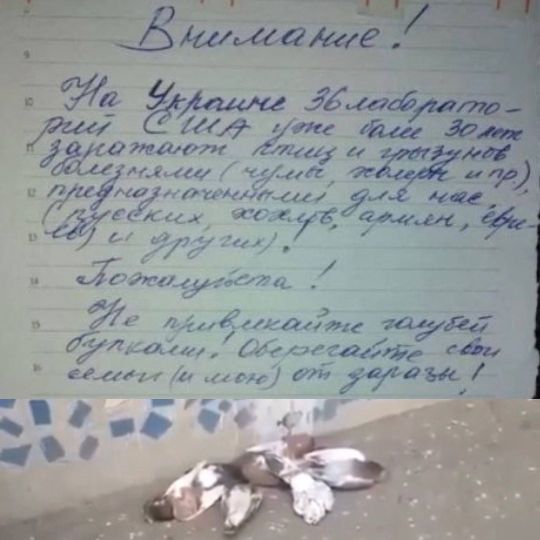 Внимание!
На Украине 36 лаборато-
рий США уже боле 30 лет
заражают птиц и грызунов
болезнями (чумы, холеры и пр),
предназначенными для нас,
(русских, хохлов, армян, евре-
ев) и других)!
Пожалуйста!
Не привлекайте голубей
булками! Оберегайте свои
семьи (и мою) от заразы!